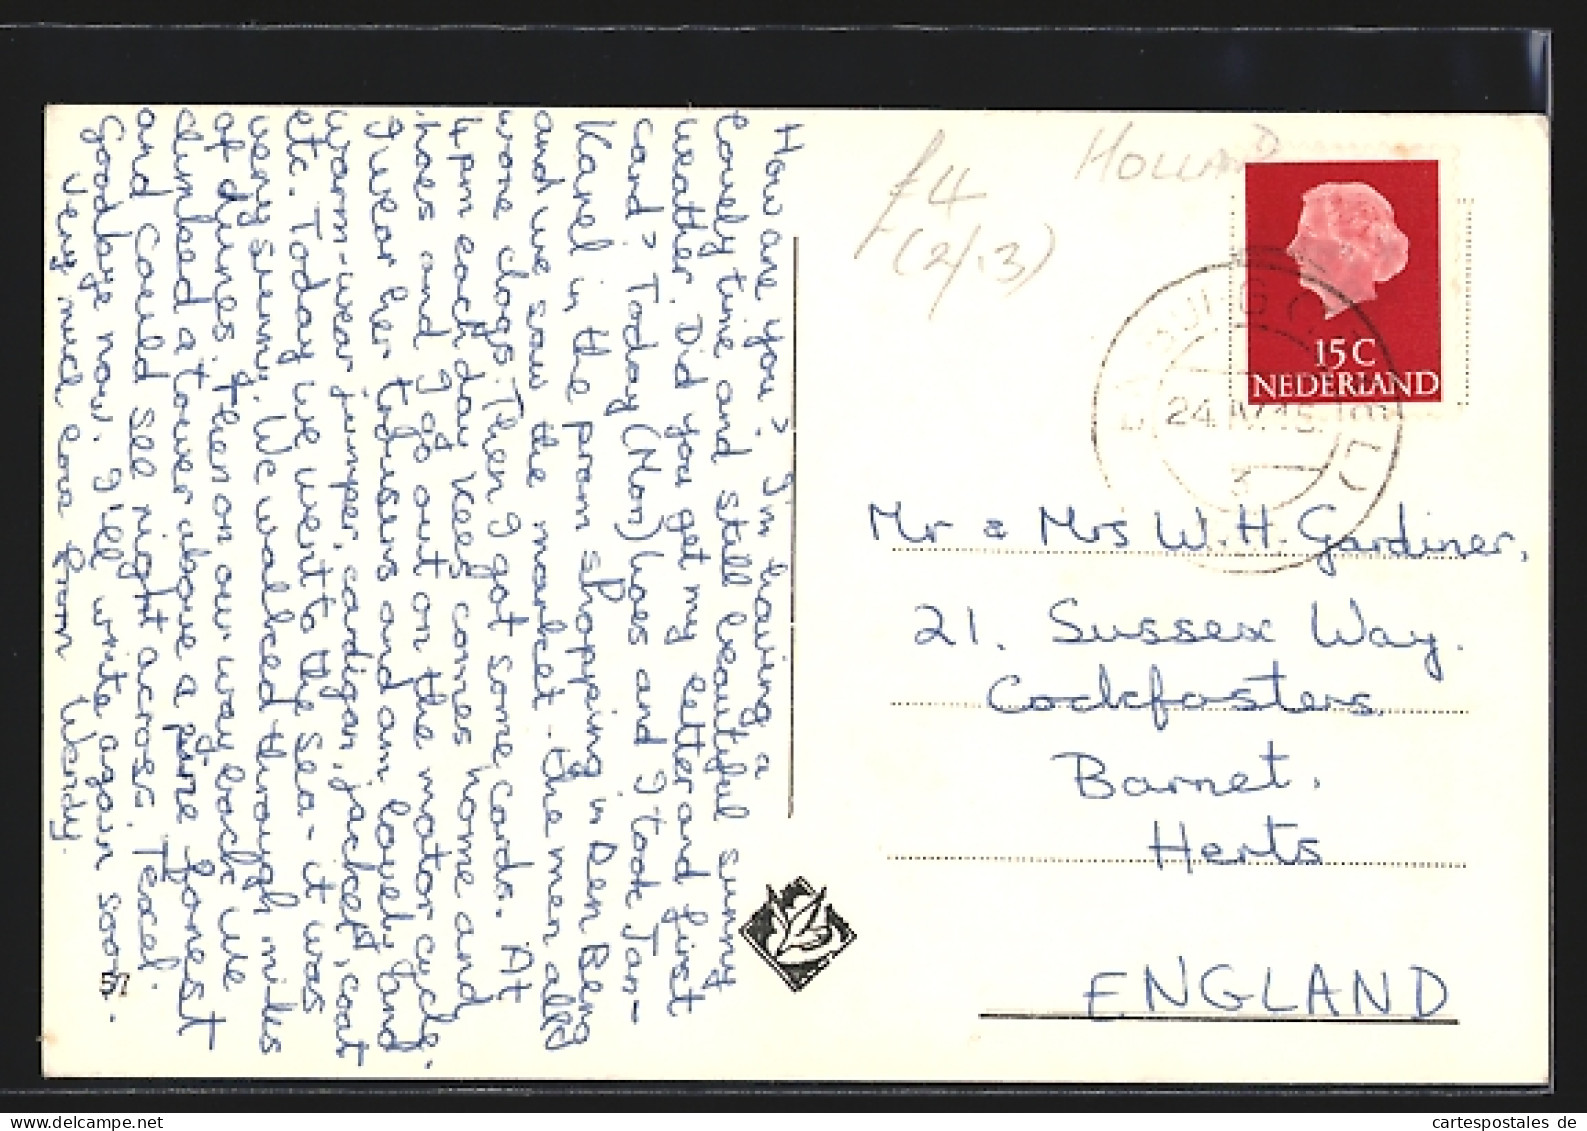 How are you? I'm having a
lovely time and still beautiful sunny
weather. Did you get my letter and first
card? Today (Mon) Loes and I took Jan-
Karel in the pram shopping in Den Berg
and we saw the market. the men all
wore clogs. Then I got some cards. At
4pm each day Kees comes home and
hoes and I go out on the motor cycle.
I wear her trousers and am lovely and
warm - wear jumper, cardigan, jacket, coat
etc. Today we went to the sea - it was
very sunny. We walked through miles
of dunes. then on our way back we
climbed a tower above a pine forest
and could see right across Texel.
Goodbye now. I'll write again soon.
Very much love from Wendy.
57
£4
(2/.3)
HOLLAND
15C
NEDERLAND
24.IV.15
Mr & Mrs W. H. Gardiner,
21. Sussex Way.
Cockfosters
Barnet.
Herts
ENGLAND
cartespostales de